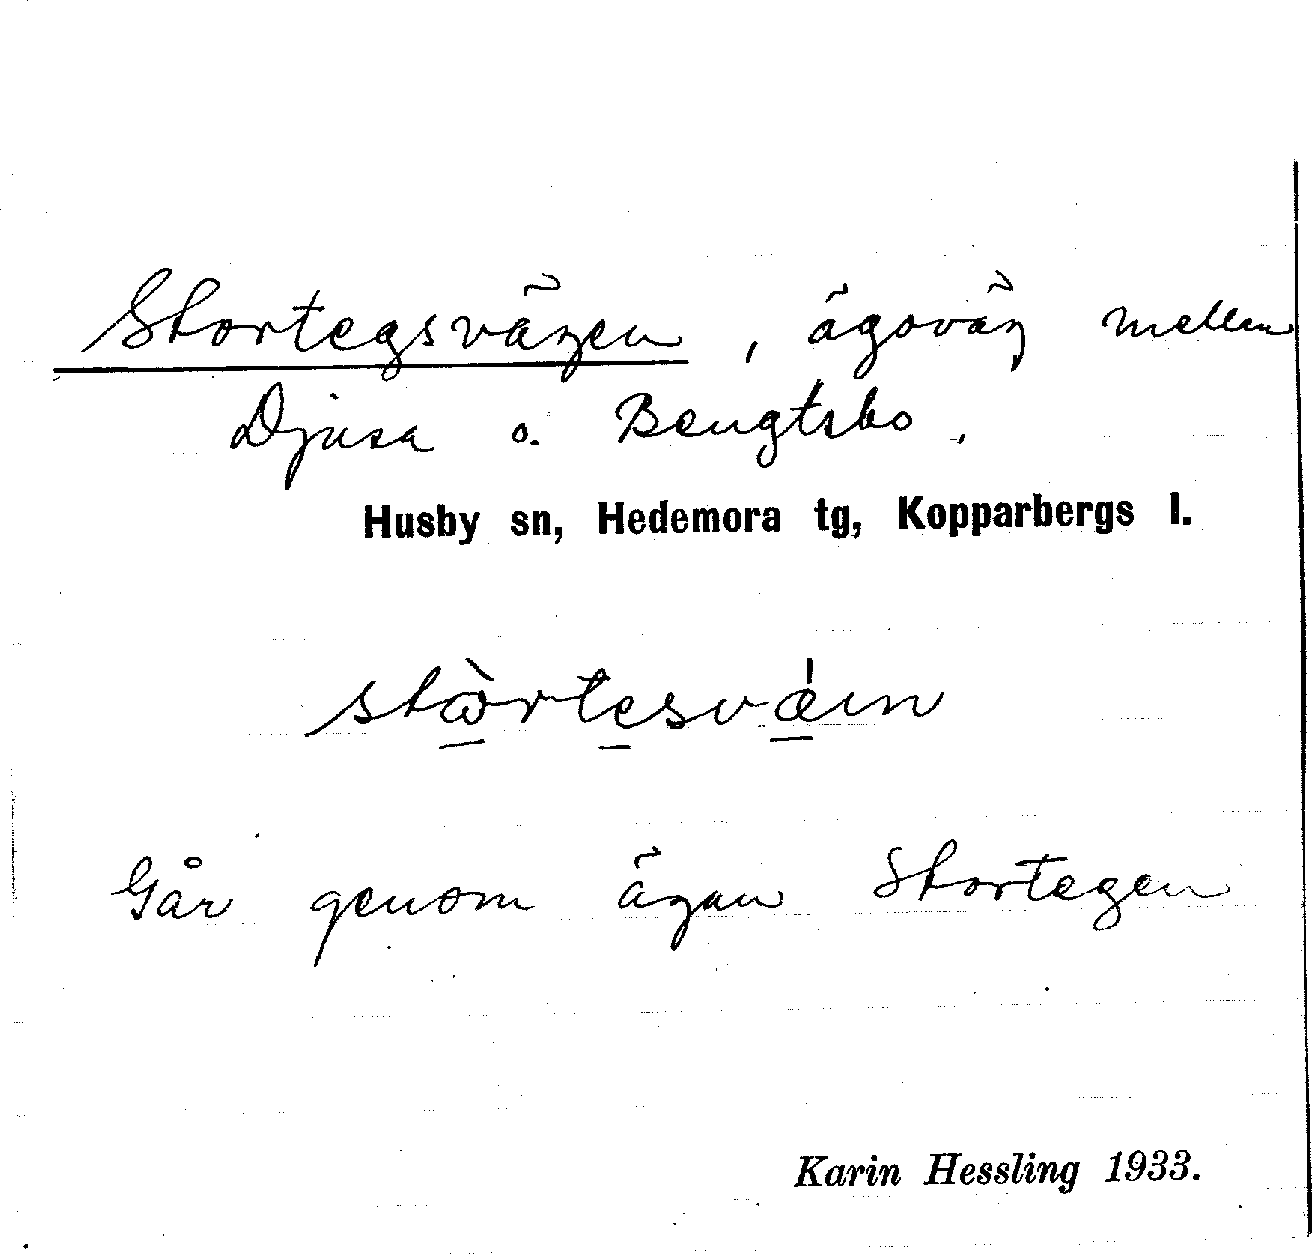 Stortegsvägen, ägoväg mellan
Djusa o. Bengtsbo.
Husby sn, Hedemora tg, Kopparbergs l.
Går genom ägan Stortegen
Karin Hessling 1933.